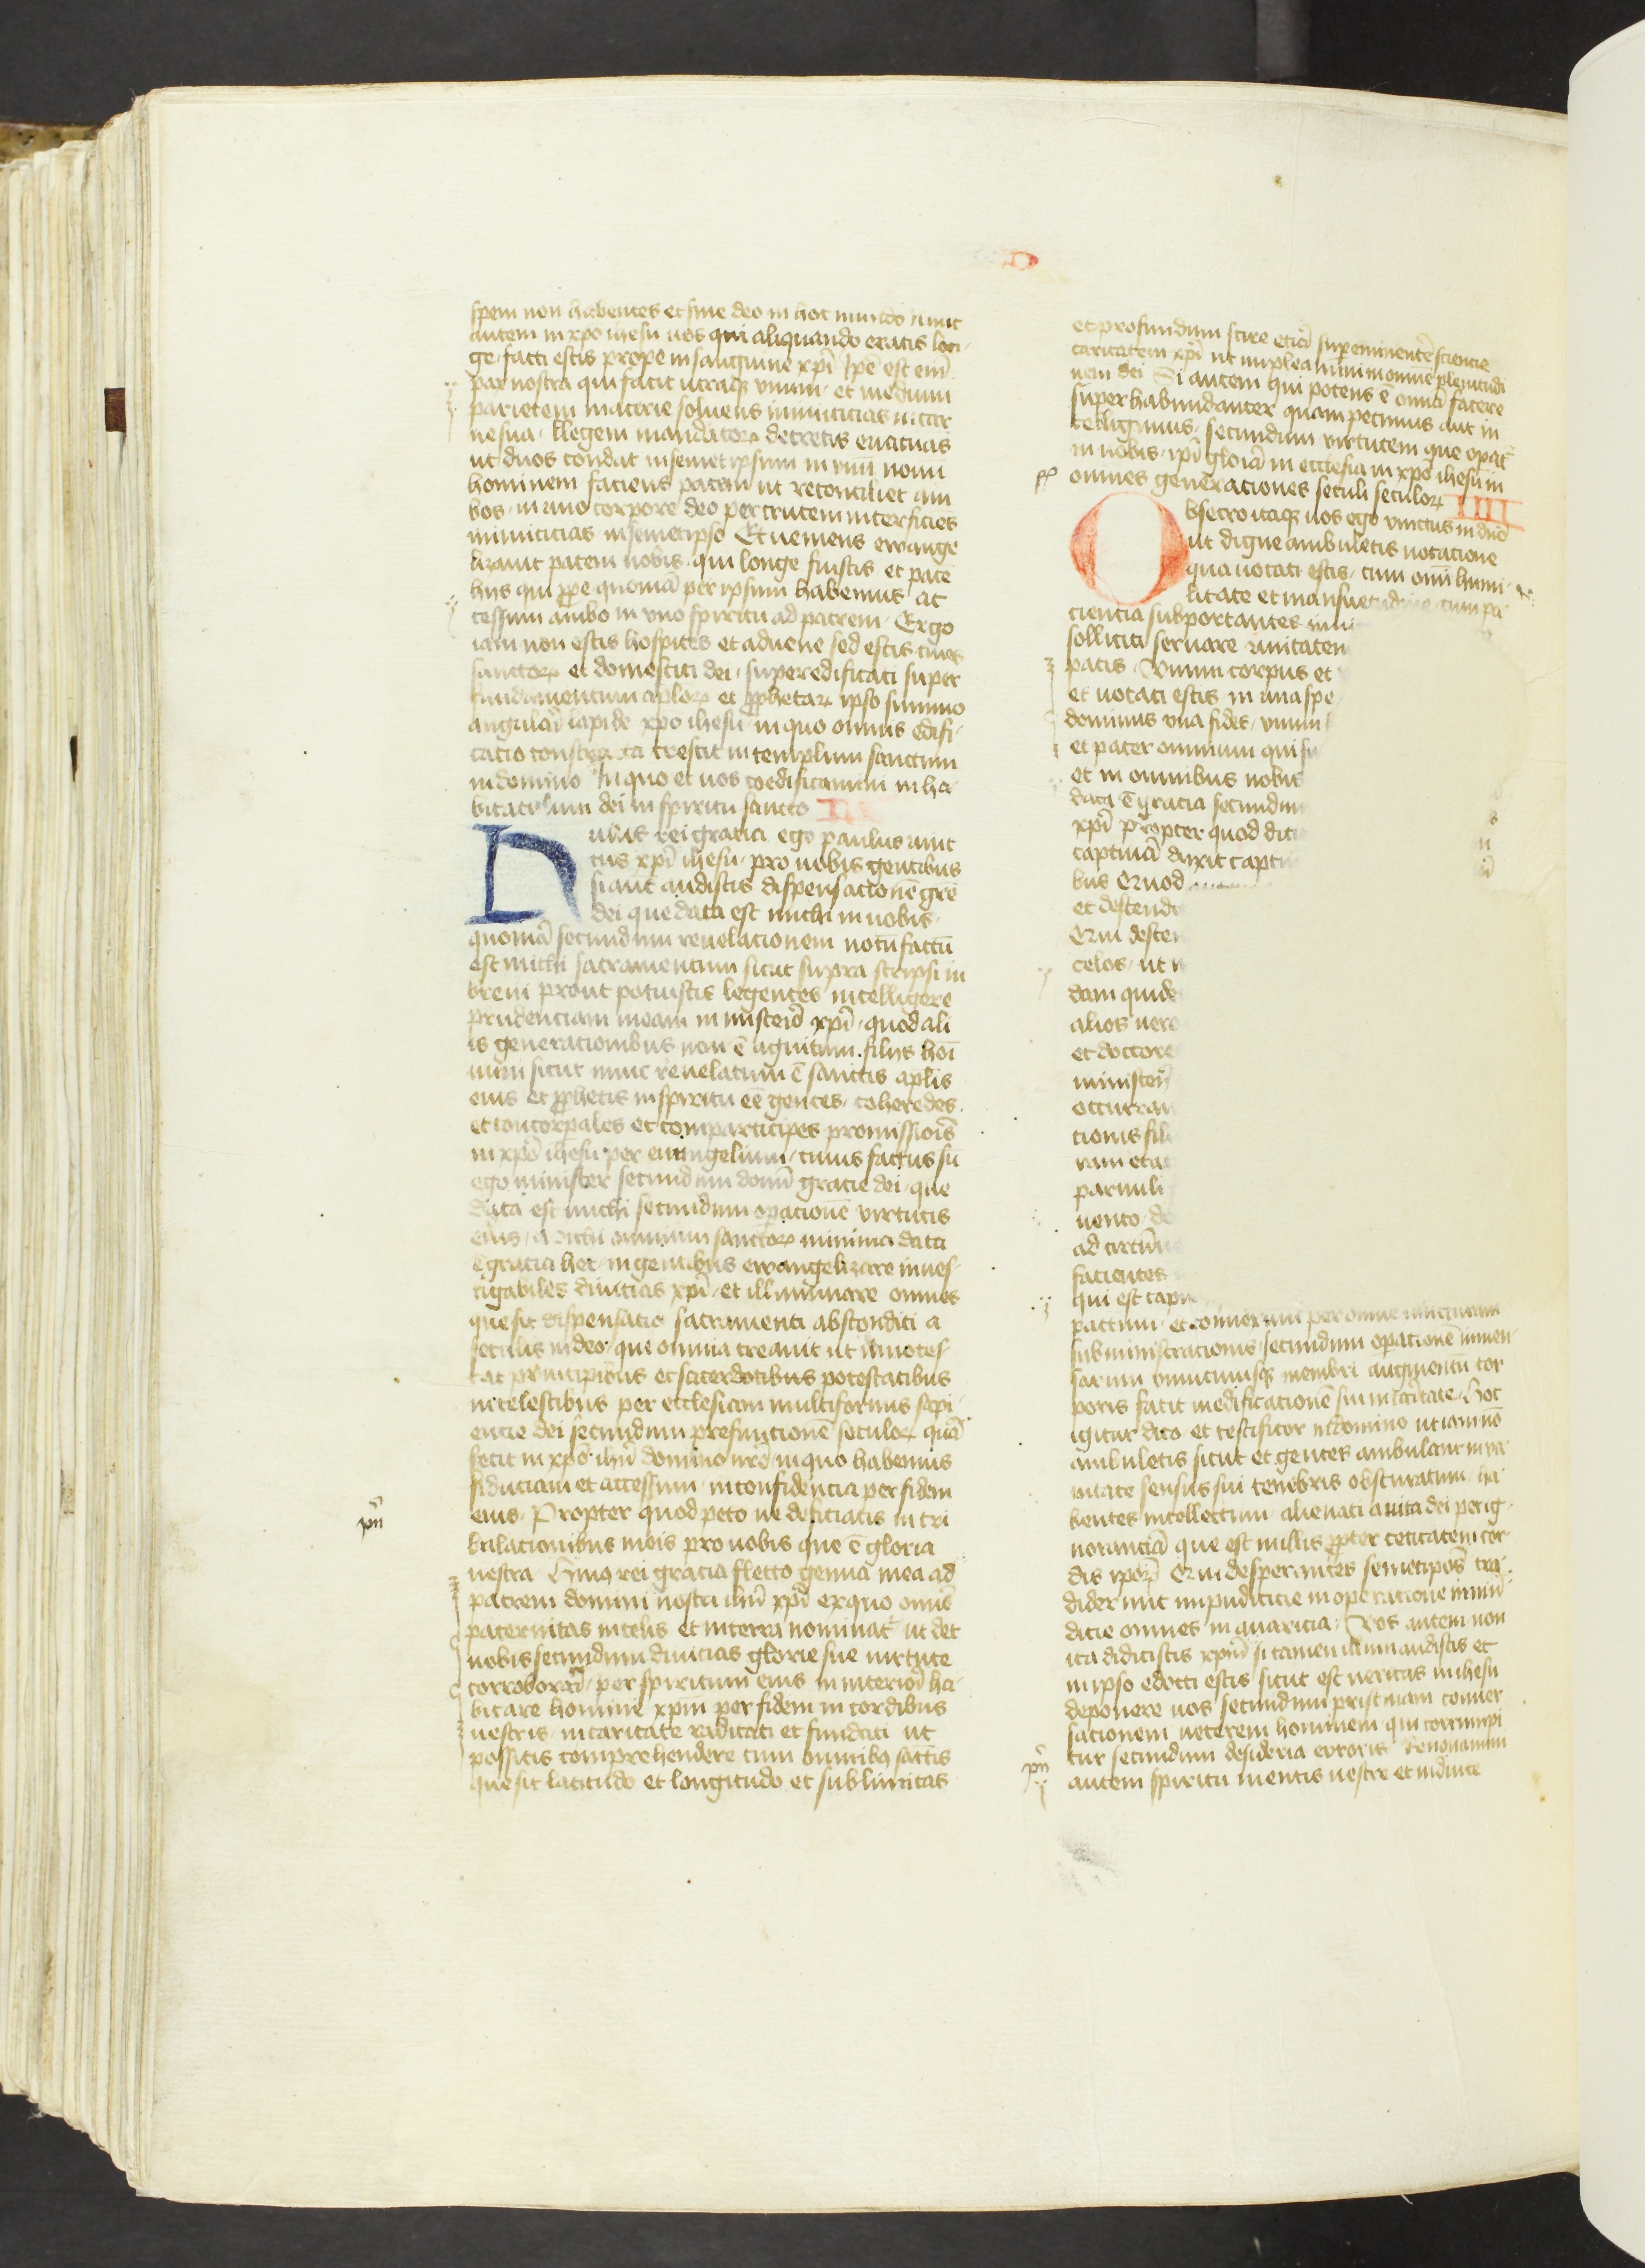 spem non habentes et sine deo in hoc mundo nunc
autem in xpo ihesu uos qui aliquando eratis lon
ge facti estis prope in sanguine xpi Ipe est em
pax nostra qui facit utraque vnum et medium
parietem macerie soluens inimicicias in car
ne sua legem mandator decretis euacuas
ut duos condat in semetipsum in vnu nouu
hominem faciens pacem ut reconciliet am
bos in uno corpore deo per crucem interficies
inimicicias in semetipso Et ueniens ewange
lizauit pacem uobis qui longe fuistis et pace
hiis qui ppe quonia per ipsum habemus ac
cessum ambo in vno spiritu ad patrem Ergo
iam non estis hospites et aduene sed estis ciues
sanctor et domestici dei superedificati super
fundamentum aplor et pphetar ipso summo
angulari lapide xpo ihesu in quo omnis edifi
catio constructa crescit in templum sanctum
in domino In quo et uos coedificamini in ha
bitaculum dei in spiritu sancto III
Huius rei gratia ego paulus uinc
tus xpi ihesu pro uobis gentibus
si aut audistis dispensacione gre
dei que data est michi in uobis
quonia secundum reuelacionem notu factu
est michi sacramentum sicut supra scripsi in
breui prout potuistis legentes intelligere
prudenciam meam in misterio xpi quod ali
is generationibus non e agnitum filiis hoi
num sicut nunc reuelatum e sanctis aplis
eius et pphetis in spiritu ee gentes coheredes
et concorporales et comparticipes promissiois
in xpo ihesu per euangelium cuius factus su
ego minister secundum donu gracie dei que
data est michi secundum opacione virtutis
eius Michi omnium sanctor minimo data
e gracia hec in gentibus ewangelizare inues
tigabiles diuicias xpi et illuminare omnes
que sit dispensatio sacramenti absconditi a
seculis in deo qui omnia creauit ut innotes
cat principibus et sacerdotibus potestatibus
in celestibus per ecclesiam multiformis sapi
encie dei secundum prefinicione seculor qua
fecit in xpo ihu domino nro in quo habemus
fiduciam et accessum in confidencia per fidem
eius Propter quod peto ne deficiatis in tri
bulacionibus meis pro uobis que e gloria
uestra Huius rei gracia flecto genua mea ad
patrem domini nostri ihu xpi ex quo omis
paternitas in celis et in terra nominat ut det
uobis secundum diuicias glorie sue uirtute
corroborari per spiritum eius in interiori ha
bitare homine xpm per fidem in cordibus
uestris in caritate radicati et fundati ut
possitis comprehendere cum omnibus sactis
que sit latitudo et longitudo et sublimitas
et profundum scire etia supereminente sciencie
caritatem xpi ut impleamini in omne plenitudi
nem dei Si autem qui potens e omia facere
superhabundanter quam petimus aut in
telligimus secundum virtutem que opat
in nobis ipi gloria in ecclesia in xpo ihesu in
omnes generaciones seculi seculor IIII
Obsecro itaque uos ego vinctus in dno
ut digne ambuletis uocatione
qua uocati estis cum omi humi
litate et mansuetudine cum pa
ciencia subportantes
solliciti seruare unitatem
pacis Vnum corpus et
et uocati estis in una spe
dominus vna fides vnum
et pater omnium qui
et in omnibus nobis
data e gracia secundum
xpi Propter quod
captiua duxit
bus Quod
et
Qui
celos ut
dam quide
alios uero
et doctores
minister
occurram
cionis fili
ram etat
paruuli
uento
ad
facientes
qui est caput
pactum et conuexum per omne iuncturam
subministracionis secundum opacione in men
suram vniuscuiusque membri augmentu cor
poris facit in edificatione sui in caritate Hoc
igitur dico et testificor in domino ut iam no
ambuletis sicut et gentes ambulant in va
nitate sensus sui tenebris obscuratum ha
bentes intellectum alienati a uita dei per ig
noranciam que est in illis ppter cecitatem cor
dis ipor Qui desperantes semetipos tra
diderunt impudicicie in operatione inmu
dicie omnes in auaricia Vos autem non
ita didicistis xpm si tamen illum audistis et
in ipso edocti estis sicut est ueritas in ihesu
deponere uos secundum pristinam conuer
sationem ueterem hominem qui corrumpi
tur secundum desideria erroris Renouamini
autem spiritu mentis uestre et induite